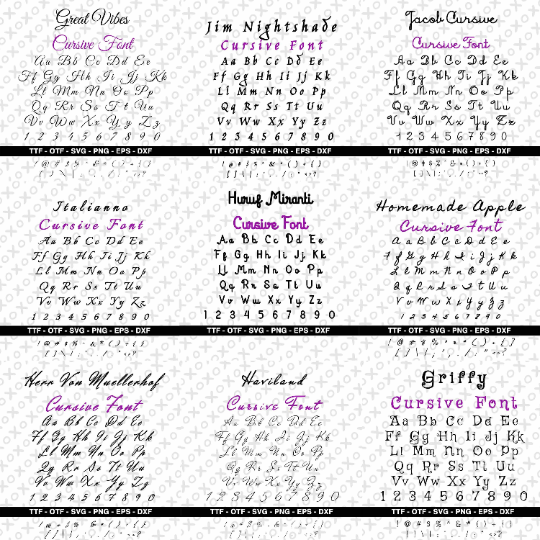 Great Vibes
Cursive Font
Aa Bb Cc Dd Ee
Ff Gg Hh Ii Jj Kk
Ll Mm Nn Oo Pp
Qq Rr Ss Tt Uu
Vv Ww Xx Yy Zz
1 2 3 4 5 6 7 8 9 0
TTF - OTF - SVG - PNG - EPS - DXF
Jim Nightshade
Cursive Font
Aa Bb Cc Dd Ee
Ff Gg Hh Ii Jj Kk
Ll Mm Nn Oo Pp
Qq Rr Ss Tt Uu
Vv Ww Xx Yy Zz
1 2 3 4 5 6 7 8 9 0
TTF - OTF - SVG - PNG - EPS - DXF
Jacob Cursive
Cursive Font
Aa Bb Cc Dd Ee
Ff Gg Hh Ii Jj Kk
Ll Mm Nn Oo Pp
Qq Rr Ss Tt Uu
Vv Ww Xx Yy Zz
1 2 3 4 5 6 7 8 9 0
TTF - OTF - SVG - PNG - EPS - DXF
Italianno
Cursive Font
Aa Bb Cc Dd Ee
Ff Gg Hh Ii Jj Kk
Ll Mm Nn Oo Pp
Qq Rr Ss Tt Uu
Vv Ww Xx Yy Zz
1 2 3 4 5 6 7 8 9 0
TTF - OTF - SVG - PNG - EPS - DXF
Huruf Miranti
Cursive Font
Aa Bb Cc Dd Ee
Ff Gg Hh Ii Jj Kk
Ll Mm Nn Oo Pp
Qq Rr Ss Tt Uu
Vv Ww Xx Yy Zz
1 2 3 4 5 6 7 8 9 0
TTF - OTF - SVG - PNG - EPS - DXF
Homemade Apple
Cursive Font
Aa Bb Cc Dd Ee
Ff Gg Hh Ii Jj Kk
Ll Mm Nn Oo Pp
Qq Rr Ss Tt Uu
Vv Ww Xx Yy Zz
1 2 3 4 5 6 7 8 9 0
TTF - OTF - SVG - PNG - EPS - DXF
Herr Von Muellerhof
Cursive Font
Aa Bb Cc Dd Ee
Ff Gg Hh Ii Jj Kk
Ll Mm Nn Oo Pp
Qq Rr Ss Tt Uu
Vv Ww Xx Yy Zz
1 2 3 4 5 6 7 8 9 0
TTF - OTF - SVG - PNG - EPS - DXF
Haviland
Cursive Font
Aa Bb Cc Dd Ee
Ff Gg Hh Ii Jj Kk
Ll Mm Nn Oo Pp
Qq Rr Ss Tt Uu
Vv Ww Xx Yy Zz
1 2 3 4 5 6 7 8 9 0
TTF - OTF - SVG - PNG - EPS - DXF
Griffy
Cursive Font
Aa Bb Cc Dd Ee
Ff Gg Hh Ii Jj Kk
Ll Mm Nn Oo Pp
Qq Rr Ss Tt Uu
Vv Ww Xx Yy Zz
1 2 3 4 5 6 7 8 9 0
TTF - OTF - SVG - PNG - EPS - DXF